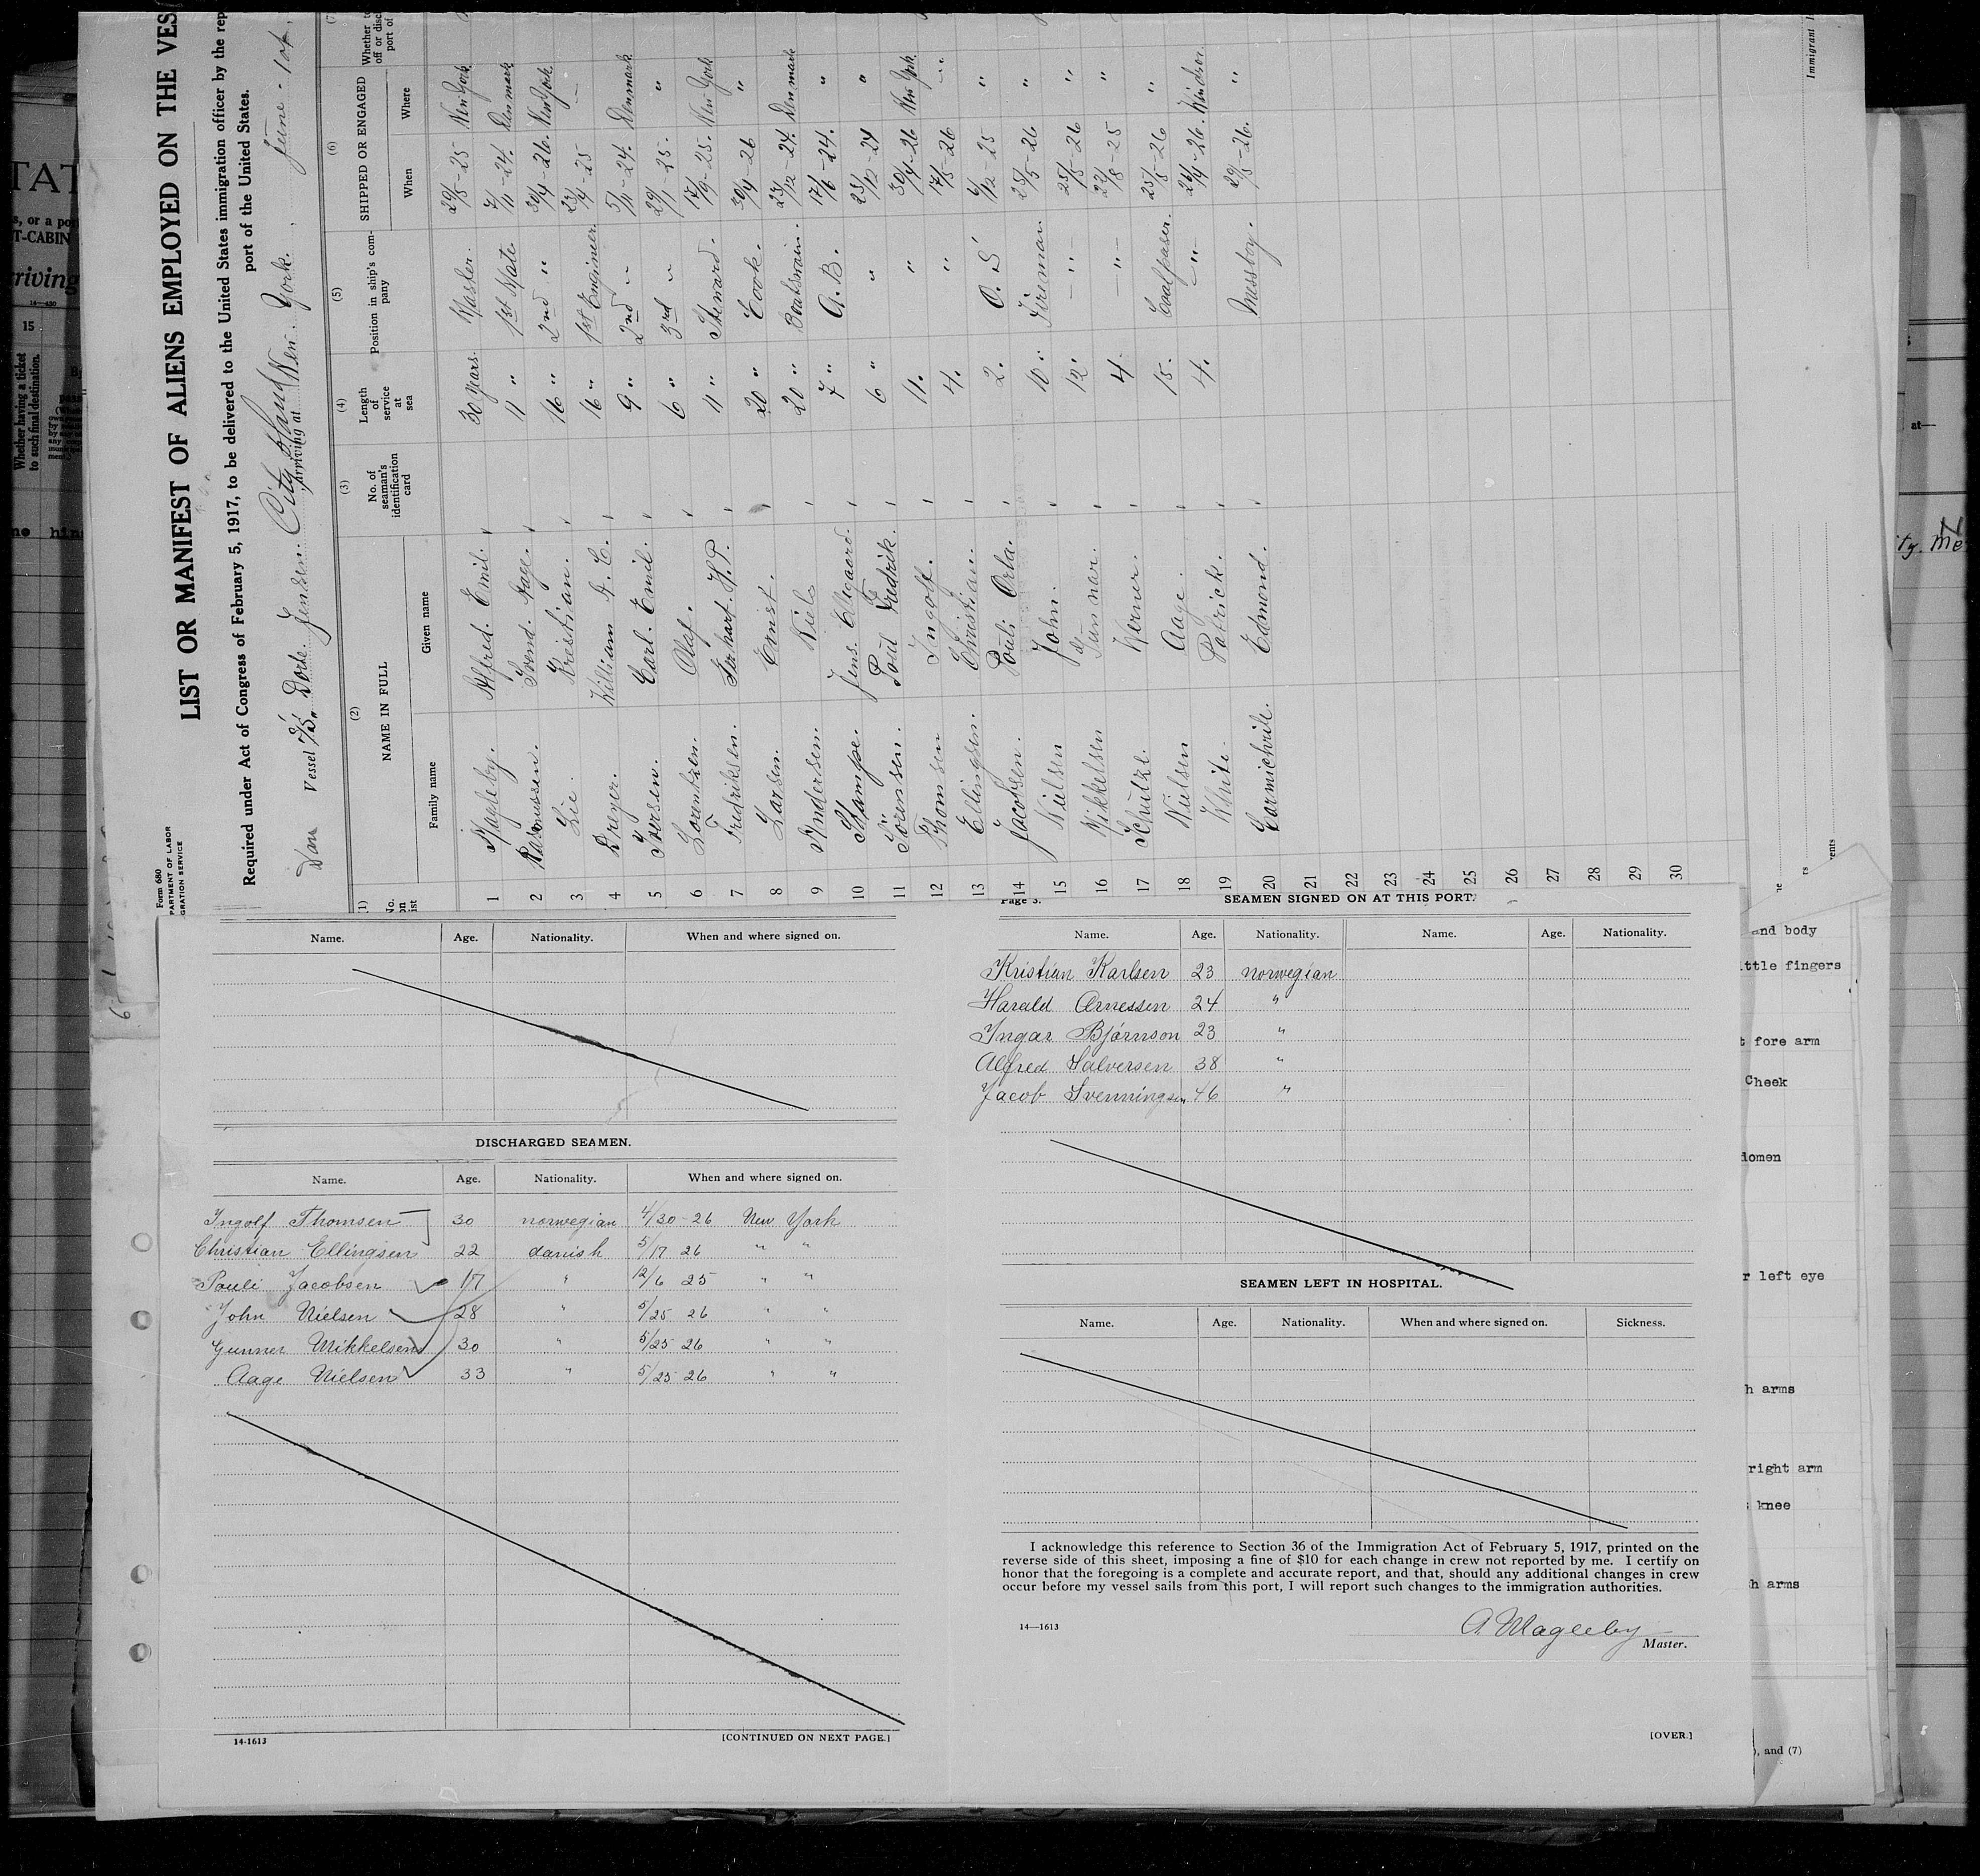 LIST OR MANIFEST OF ALIENS EMPLOYED ON THE VES
Form 680
PARTMENT OF LABOR
GRATION SERVICE
Required under Act of Congress of February 5, 1917, to be delivered to the United States immigration officer by the rep
port of the United States.
Dan Vessel S/S. Dorte Jensen. City Island arriving at New York. , June - 1st.
(2) (3) (4) (5) (6)
No. on list NAME IN FULL Family name Given name No. of seaman's identification card Length of service at sea Position in ship's company SHIPPED OR ENGAGED When Where
1 Magleby. Alfred. Emil. 30 years. Master. 29/5-25 New York
2 Rasmussen. Svend. Aage. 11 " 1st Mate 7/11-24. Denmark
3 Lie. Kristian. 16 " 2nd " 30/4-26. New York
4 Dreyer. William A. C. 16 " 1st Engineer 23/4-25
5 Iversen. Carl. Emil. 9 " 2nd " 5/11-24. Denmark
6 Lorentzen. Olaf. 6 " 3rd " 29/1-25. "
7 Fredriksen. H.P. 11 " Steward. 17/9-25. New York
8 Larsen. Ernst. 20 " Cook. 30/4-26 "
9 Andersen. Niels 20 " Boatswain. 23/12-24. Denmark
10 Stampe. Jens. Elegaard. 7 " A.B. 17/6-24. "
11 Sörensen. Poul Fredrik. 6 " " 23/12-24 "
12 Thomsen Ingolf. 11. " 30/4-26 New York
13 Ellingsen. Christian. 4. " 17/5-26 "
14 Jacobsen. Pouli Orla. 2. O.S. 6/12-25 "
15 Nielsen John. 10. Fireman 25/5-26 "
16 Mikkelsen Gunnar. 12. " 25/5-26 "
17 Schutze. Werner. 4. " 22/8-25 "
18 Nielsen Aage. 15. Coalpasser. 25/5-26 "
19 White. Patrick. 4. " 26/4-26. Windsor.
20 Carmichrile. Edmond. Messboy. 29/5-26. "
21
22
23
24
25
26
27
28
29
30
Name. Age. Nationality. When and where signed on.
DISCHARGED SEAMEN.
Name. Age. Nationality. When and where signed on.
Ingolf Thomsen 30 norwegian 4/30-26 New York
Christian Ellingsen 22 danish 5/17 26 " "
Pauli Jacobsen 17 " 12/6 25 " "
John Nielsen 28 " 5/25 26 " "
Gunner Mikkelsen 30 " 5/25 26 " "
Aage Nielsen 33 " 5/25 26 " "
14-1613 [CONTINUED ON NEXT PAGE.]
Page 3. SEAMEN SIGNED ON AT THIS PORT.
Name. Age. Nationality. Name. Age. Nationality.
Kristian Karlsen 23 norwegian
Harald Arnessen 24 "
Ingar Bjørnson 23 "
Alfred Salversen 38 "
Jacob Svenningsen 46 "
SEAMEN LEFT IN HOSPITAL.
Name. Age. Nationality. When and where signed on. Sickness.
I acknowledge this reference to Section 36 of the Immigration Act of February 5, 1917, printed on the
reverse side of this sheet, imposing a fine of $10 for each change in crew not reported by me. I certify on
honor that the foregoing is a complete and accurate report, and that, should any additional changes in crew
occur before my vessel sails from this port, I will report such changes to the immigration authorities.
14—1613
A Magleby
Master.
[OVER.]
and body
ittle fingers
t fore arm
Cheek
domen
r left eye
h arms
right arm
knee
h arms
), and (7)